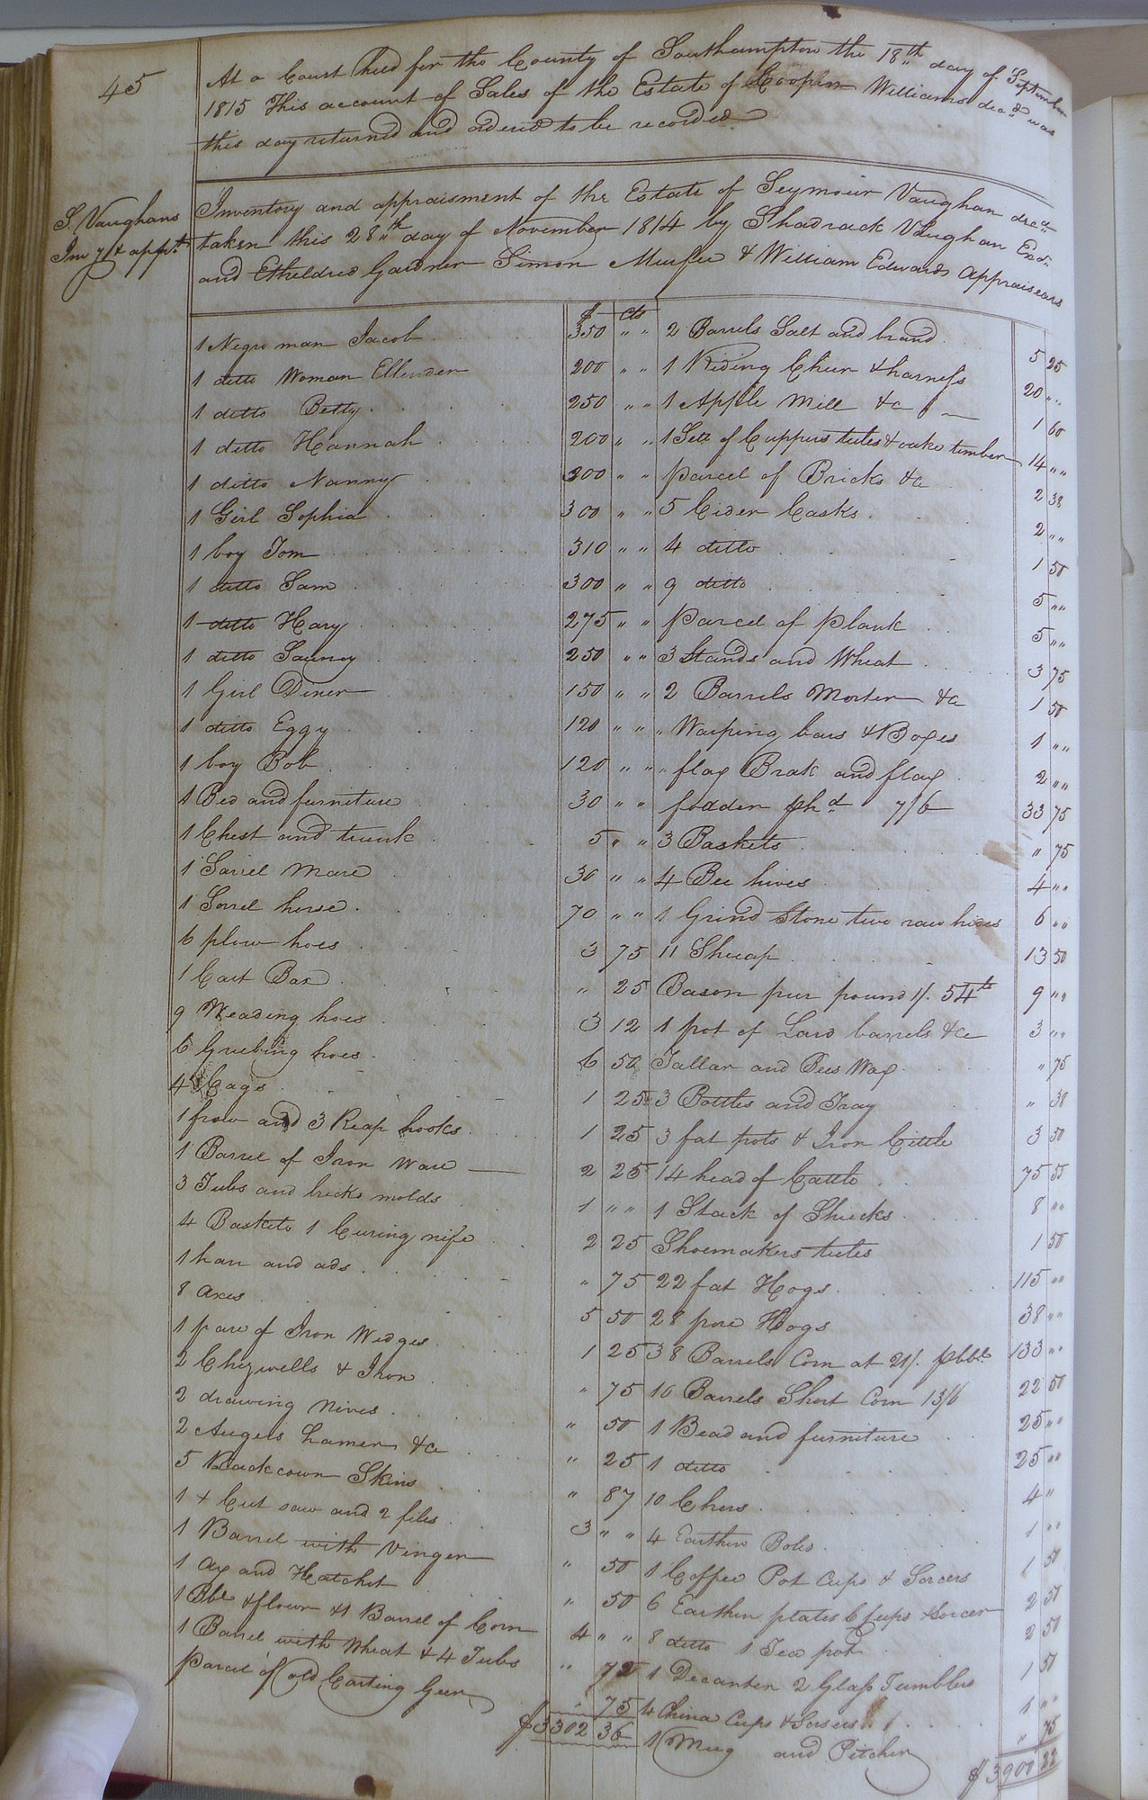 45
At a Court held for the County of Southampton the 18th day of September
1815 This account of Sales of the Estate of Williams decd was
this day returned and ordered to be recorded
S. Vaughans
Invy & appt
Inventory and appraisment of the Estate of Seymour Vaughan decd
taken this 28th day of November 1814 by Shadrack Vaughan Exor
and Etheldred Gardner Simon Murfee & William Edwards Appraisears
$ cts
1 Negro man Jacob 350 " "
1 ditto Woman Ellender 200 " "
1 ditto Betty 250 " "
1 ditto Hannah 200 " "
1 ditto Nanny 300 " "
1 Girl Sophia 300 " "
1 boy Tom 310 " "
1 ditto Sam 300 " "
1 ditto Hary 275 " "
1 ditto 250 " "
1 Girl Diner 150 " "
1 ditto Eggy 120 " "
1 boy Bob 120 " "
1 Bed and furniture 30 " "
1 Chest and trunk 5 " "
1 Sorrel Mare 30 " "
1 Sorrel horse 70 " "
6 plow hoes 3 75
1 Cart Box " 25
9 Weading hoes 3 12
6 Grubing hoes 6 50
4 Cags 1 25
1 frow and 3 Reap hooks 1 25
1 Barrel of Iron Ware 2 25
3 Tubs and bricks molds 1 " "
4 Baskets 1 Curing nife 2 25
1 han and ads " 75
8 axes 5 50
1 pare of Iron Wedges 1 25
2 Chizwells & Iron " 75
2 drawing nives " 50
2 Augers hamer &c " 25
5 Rackcown Skins " 87
1 + Cut saw and 2 files 3 " "
1 Barrel with Vinger " 50
1 ax and Hatchet " 50
1 Bbl & flour & 1 Barrel of Corn 4 " "
1 Barrel with Wheat & 4 Tubs " 72
Parcel of old Carting Geer " 75
$3302 36
2 Barrels Salt and brand 5 25
1 Riding Cheir & harness 20 " "
1 Apple Mill &c 1 60
1 Sett of Cuppers tules & oake timber 14 " "
Parcel of Bricks &c 2 38
5 Cider Casks 2 " "
4 ditto 1 50
9 ditto 5 " "
Parcel of plank 5 " "
3 Stands and Wheat 3 75
2 Barrels Morter &c 1 50
" Warping bars & Boxes 1 " "
" flax Brak and flax 2 " "
fodder 7/6 33 75
3 Baskets " 75
4 Bee hives 4 " "
1 Grind Stone two raw hides 6 " "
11 Sheap 13 50
Bacon pur pound 1/. 54 lb 9 " "
1 pot of Lard barrels &c 3 " "
Tallar and Bees Wax " 75
3 Bottles and Tray " 38
3 fat pots & Iron Cittle 3 50
14 head of Cattle 75 55
1 Stack of Shucks 8 " "
Shoemakers tules 1 50
22 fat Hogs 115 " "
28 pore Hogs 38 " "
38 Barrels Corn at 21/. pbbl 133 " "
10 Barrels Short Corn 13/6 22 50
1 Bead and furniture 25 " "
1 ditto 25 " "
10 Chers 4 "
4 Earthen Boles 1 " "
1 Coffee Pot Cups & Sorcers 1 50
6 Earthen plates 6 Cups & Sorcer 2 50
8 ditto 1 Tea pot 2 50
1 Decanter 2 Glass Tumblers 1 50
4 China Cups & Sorsers 1 " "
1 Mug and Pitcher " 75
$3900 22